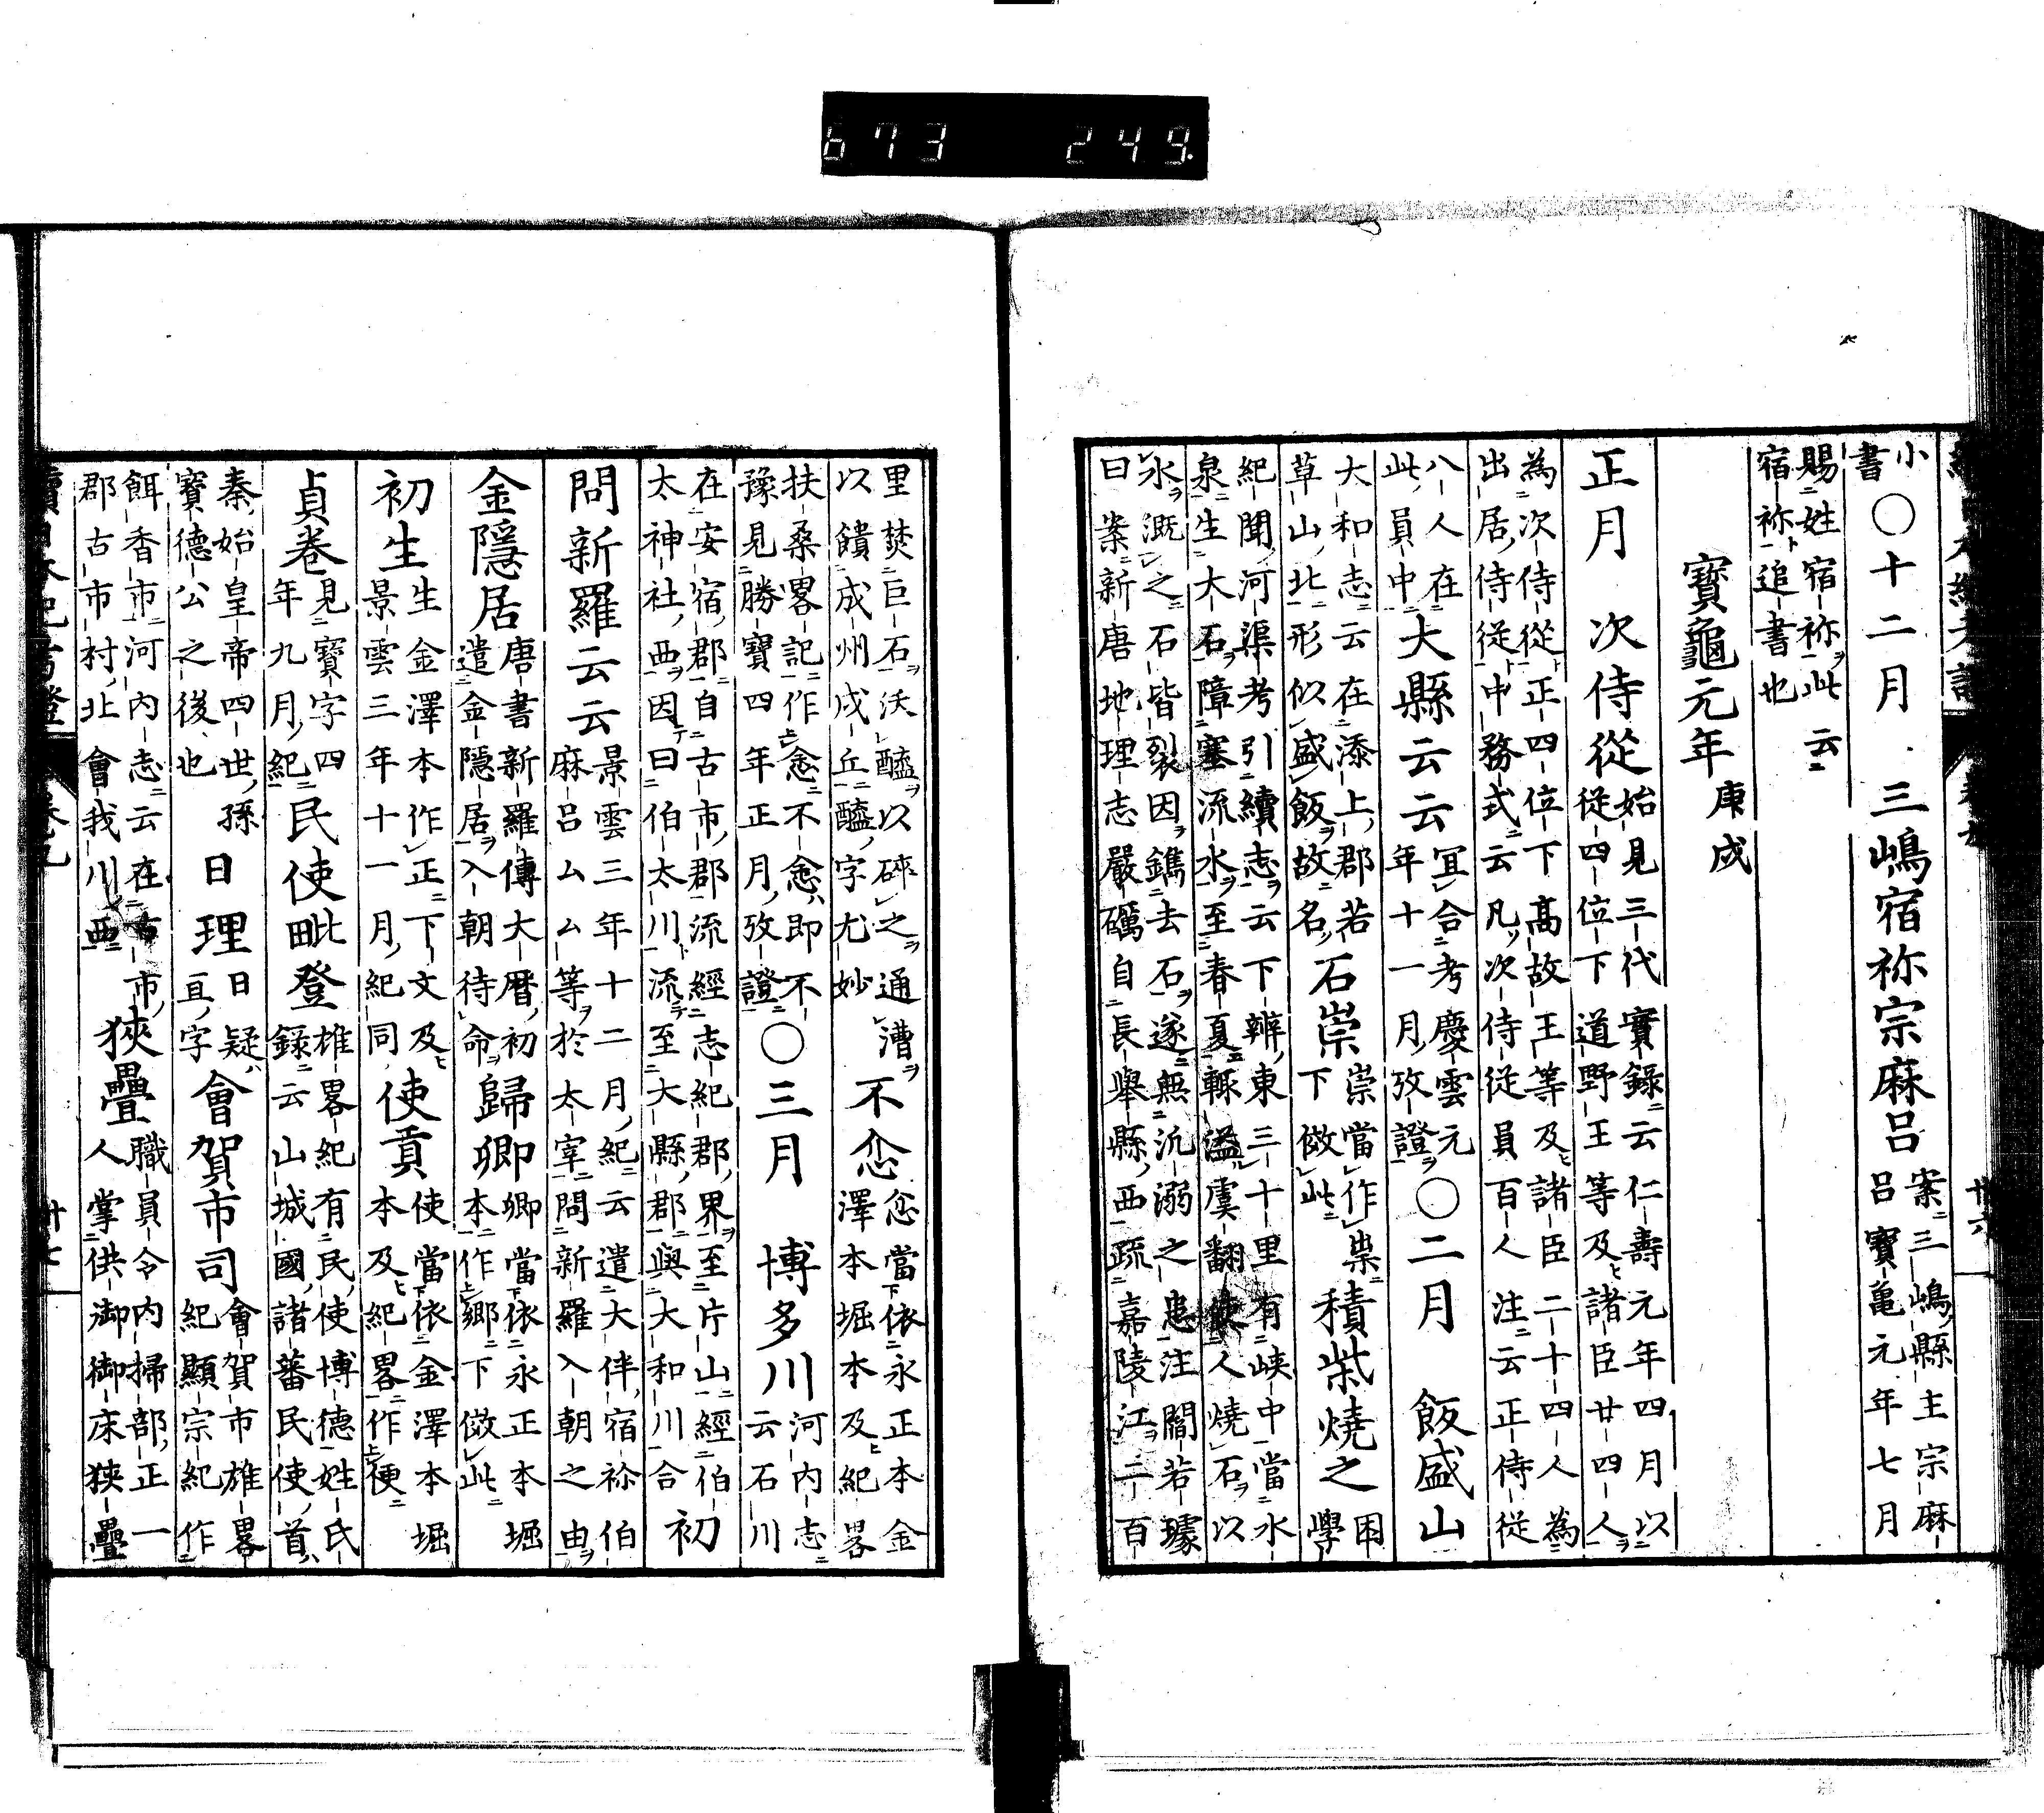 673 249.
小書○十二月 三嶋宿祢宗麻呂案三嶋縣主宗麻呂寶亀元年七月
賜姓宿祢此云宿祢追書也
寶龜元年庚戌
正月 次侍從始見三代實録云仁壽元年四月以從四位下道野王等及諸臣廿四人
為次侍從正四位下髙故王等及諸臣二十四人為出居侍從中務式云凡次侍從員百人注云正侍從
八人在此員中大縣云云冝合考慶雲元年十一月攷證○二月 飯盛山
大和志云在添上郡若草山北形似盛飯故名石崇崇當作祟下倣此積柴燒之困學
紀聞河渠考引續志云下辨東三十里有峽中當水泉生大石障塞流水至春夏輙溢虞翻使人燒石以
水溉之石皆裂因鐫去石遂無氿溺之患注閻若璩曰案新唐地理志嚴礪自長舉縣西疏嘉陵江二百
里焚巨石沃醯以碎之通漕以饋成州戍丘醯字尤妙不悆悆當依永正本金澤本堀本及紀畧
扶桑畧記作悆不悆即不豫見勝寶四年正月攷證○三月 博多川河内志云石川
在安宿郡自古市郡流經志紀郡界至片山經伯太神社西因曰伯太川流至大縣郡與大和川合初
問新羅云云景雲三年十二月紀云遣大伴宿祢伯麻呂ムム等於太宰問新羅入朝之由
金隱居唐書新羅傳大暦初遣金隱居入朝待命歸卿卿當依永正本堀本作郷下倣此
初生生金澤本作正下文及景雲三年十一月紀同使貢使當依金澤本堀本及紀畧作便
貞卷見寶字四年九月紀民使毗登雄畧紀有民使博德姓氏録云山城國諸蕃民使首
秦始皇帝四世孫寶德公之後也日理日疑亘字會賀市司會賀市雄畧紀顯宗紀作
餌香市河内志云在古市郡古市村北會我川西狹疊職員令内掃部正一人掌供御御床狹疊